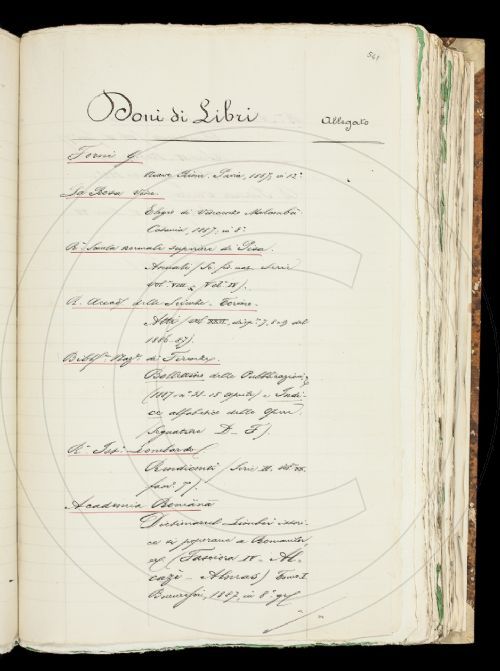 541
Doni di Libri
Allegato
Torni G.
Pavia, 1887, in 12°
La Rosa
Elogio di Vincenzo
Catania, 1887, in 8°
R.ª Scuola normale superiore di Pisa.
Annali (Sc. fis. mat. Serie
Vol. VIII, Vol. IV).
R. Accad. delle Scienze. Torino.
Atti (Vol. XXII, disp. 7, 8-9 del
1886-87).
Bibl.ca Naz.le di Firenze.
Bollettino delle Pubblicazioni
(1887 n° 15 Agosto) e Indi-
ce alfabetico delle Opere
D-F).
R. Ist. Lombardo
Rendiconti (Serie II. Vol. XX.
fasc. 7°).
Academia Română
Dictionarul Limbei istori-
ce si poporane a Romanilor
(Fasciora IV - Al-
Tomu I
Bucuresci, 1887, in 8° gr.